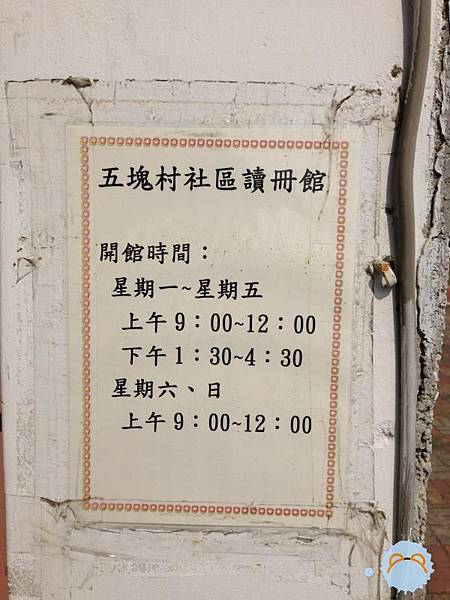 五塊村社區讀冊館
開館時間：
星期一~星期五
上午 9：00~12：00
下午 1：30~4：30
星期六、日
上午 9：00~12：00